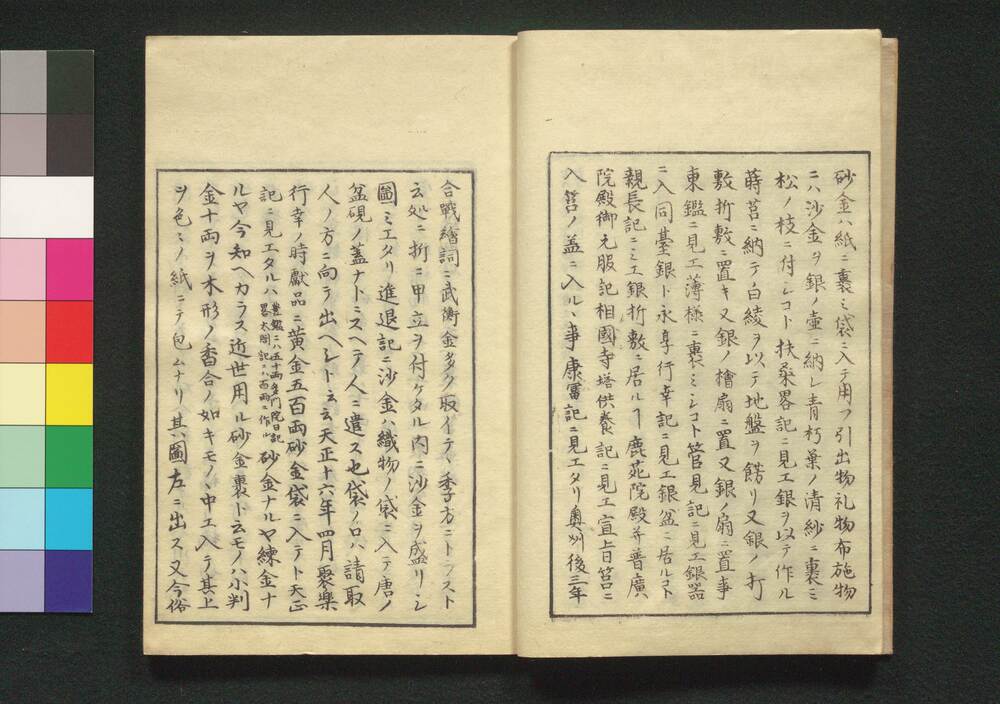 砂金ハ紙ニ裹ミ袋ニ入テ用フ引出物礼物布施物
ニハ沙金ヲ銀ノ壷ニ納レ青朽葉ノ清紗ニ裹ミ
松ノ枝ニ付シコト扶桒畧記ニ見エ銀ヲ以テ作ル
蒔筥ニ納テ白綾ヲ以テ地盤ヲ餝リ又銀ノ打
敷折敷ニ置キ又銀ノ檜扇ニ置又銀ノ扇ニ置事
東鑑ニ見エ薄様ニ裹ミシコト管見記ニ見エ銀器
ニ入同臺銀ト永享行幸記ニ見エ銀盆ニ居ルコト
親長記ニミエ銀折敷ニ居ルヿ鹿苑院殿并普廣
院殿御元服記相國寺塔供養記ニ見エ宣上日筥ニ
入筥ノ盖ニ入ルヽ事康冨記ニ見エタリ奥州後三年
合戰繪詞ニ武衡金多ク取イテヽ季方ニトラスト
云処ニ折ニ甲立ヲ付ケタル内ニ沙金ヲ盛リシ
圖ミエタリ進退記ニ沙金ハ織物ノ袋ニ入テ唐ノ
盆硯ノ蓋ナトニスヘテ人ニ遣ス也袋ノ口ハ請取
人ノ方ニ向テ出ヘシト云云天正十六年四月聚楽
行幸ノ時獻品ニ黄金五百両砂金袋ニ入テト天正
記ニ見エタルハ豊鑑ニハ五十両多門院日記畧太閤記ニハ百両ニ作ル砂金ナルヤ練金ナ
ルヤ今知ヘカラス近世用ル砂金裹ト云モノハ小判
金十両ヲ木形ノ香合ノ如キモノヽ中エ入テ其上
ヲ色ミノ紙ニテ包ムナリ其圖左ニ出ス又今俗